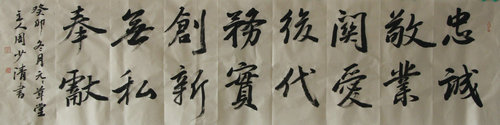 忠誠
敬業
關愛
後代
務實
創新
無私
奉獻
癸卯冬月元華堂
主人周少清書